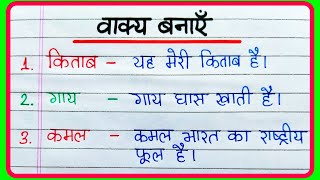 वाक्य बनाएँ
1. किताब – यह मेरी किताब है।
2. गाय – गाय घास खाती है।
3. कमल – कमल भारत का राष्ट्रीय
फूल है।